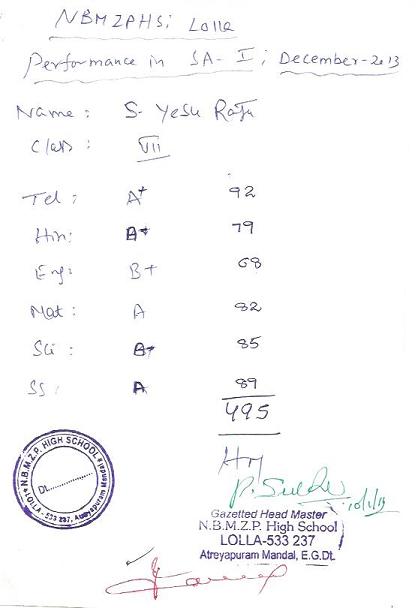 NBMZPHS; Lolla
Performance in SA-I; December-2013
Name: S. Yesu Raju
Class: VII
Tel: A+ 92
Hin: B+ 79
Eng: B+ 68
Mat: A 82
Sci: 85
SS: A 89
495
HM
N.B.M.Z.P. HIGH SCHOOL
Dt.
LOLLA - 533 237, Atreyapuram Mandal
Gazetted Head Master
N.B.M.Z.P. High School
LOLLA-533 237
Atreyapuram Mandal, E.G.Dt.